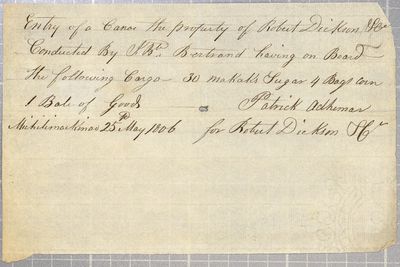 Entry of a Canoe the property of Robert Dickson &Co
Conducted By J Bt. Bertrand having on Board
the following Cargo - 30 makaks Sugar 4 Bags corn
1 Bale of Goods
Patrick Adhemar
Michilimackinac 25th May 1806 for Robert Dickson & Co